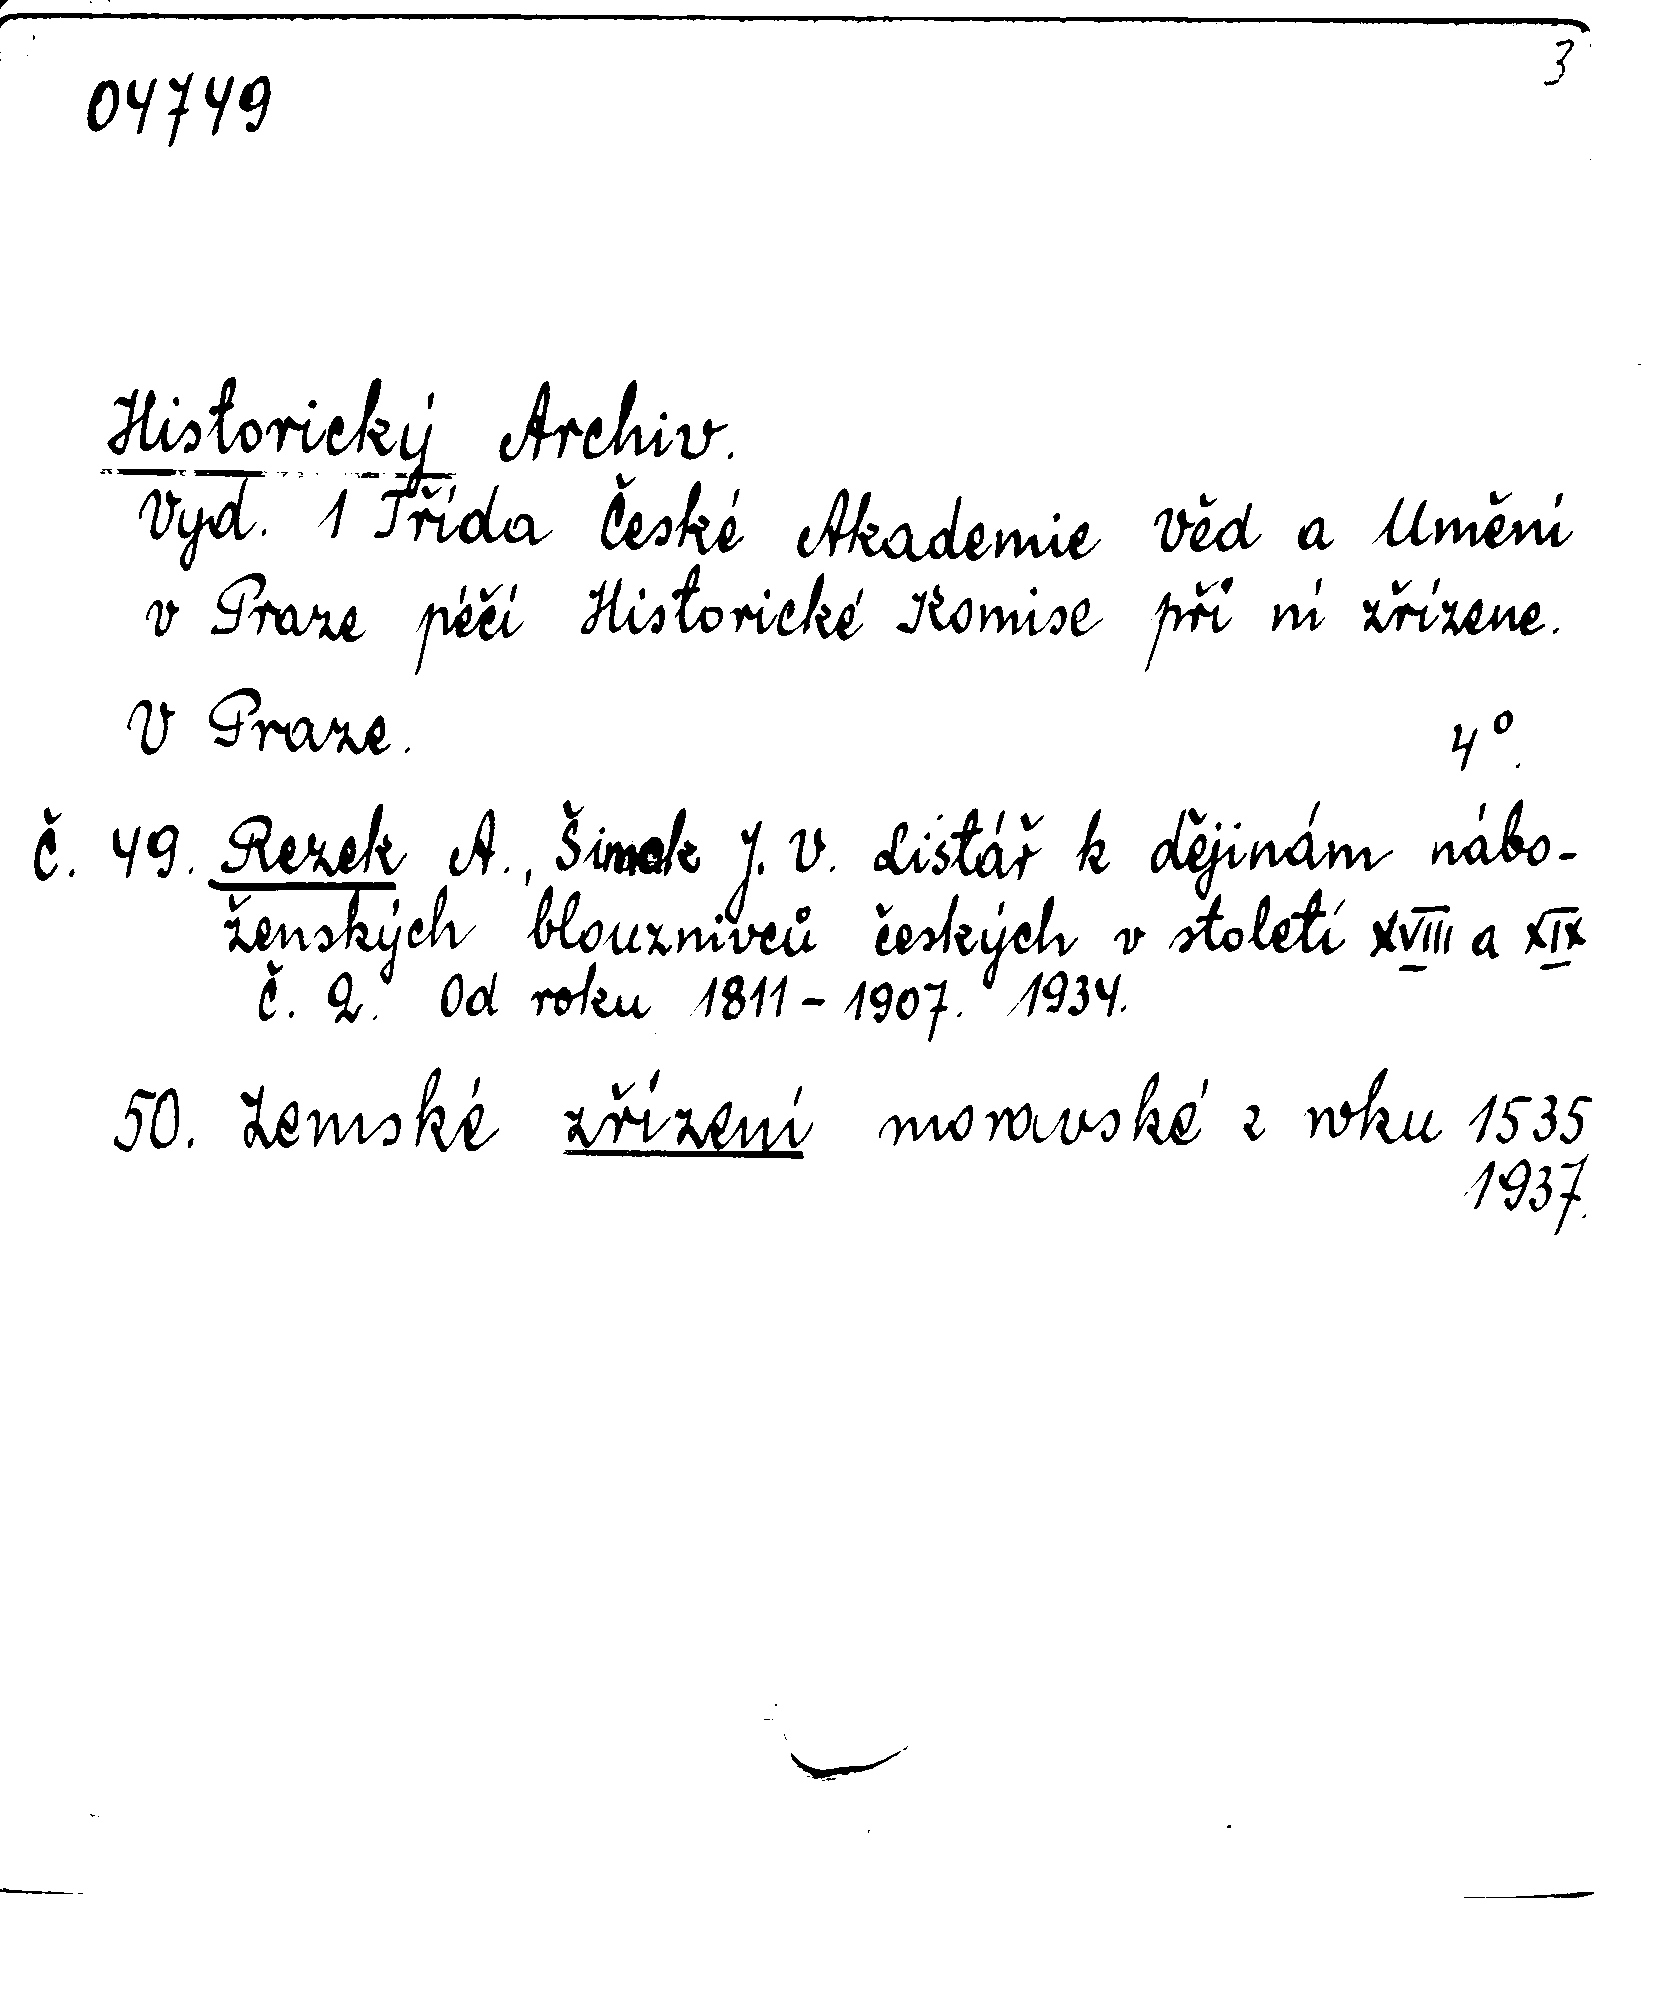 3
04749
Historický Archiv.
Vyd. 1 Třída České Akademie Věd a Umění
v Praze péčí Historické Komise při ní zřízene.
V Praze. 4º.
Č. 49. Rezek A., Šimak J. V. Listář k dějinám nábo-
ženských blouznivců českých v století XVIII a XIX
Č. 2. Od roku 1811-1907. 1934.
50. Zemské zřízení moravské z roku 1535
1937.